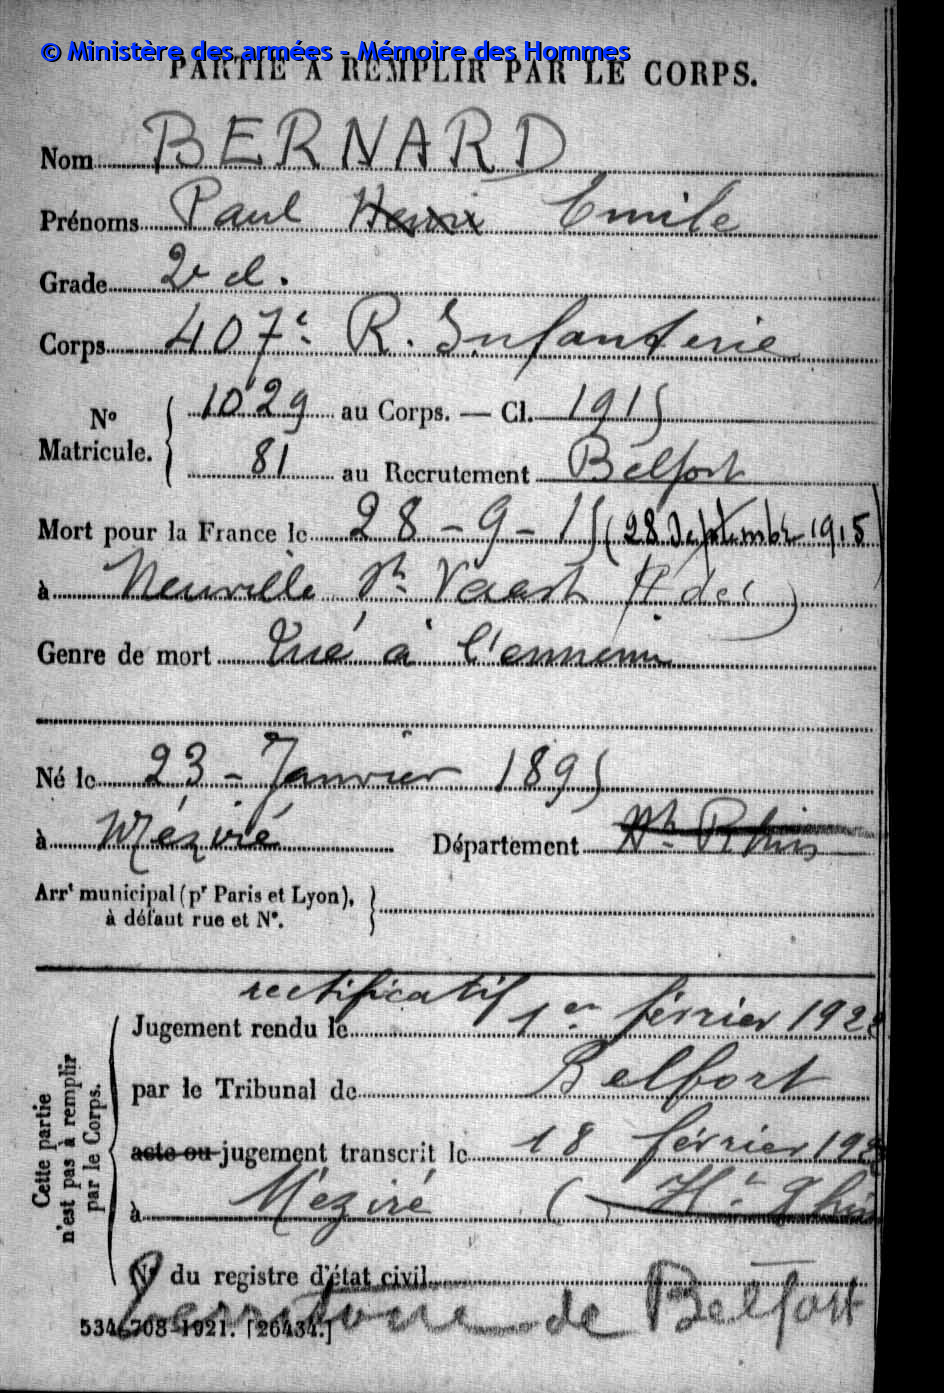 © Ministère des armées - Mémoire des Hommes
PARTIE À REMPLIR PAR LE CORPS.
Nom BERNARD
Prénoms Paul Henri Emile
Grade 2e cl.
Corps 407e R. Infanterie
No Matricule. { 1029 au Corps. — Cl. 1915
81 au Recrutement Belfort
Mort pour la France le 28 - 9 - 15 (28 Septembre 1915)
à Neuville St Vaast (P. de C)
Genre de mort Tué à l'ennemi
Né le 23 - Janvier 1895
à Méziré Département Ht Rhin
Arrt municipal (pr Paris et Lyon),
à défaut rue et No.
rectificatif
Jugement rendu le 1er février 192
par le Tribunal de Belfort
acte ou jugement transcrit le 18 février 192
à Méziré (Ht Rhin
No du registre d'état civil
Territoire de Belfort
534-708-1921. [26434.]
Cette partie
n'est pas à remplir
par le Corps.